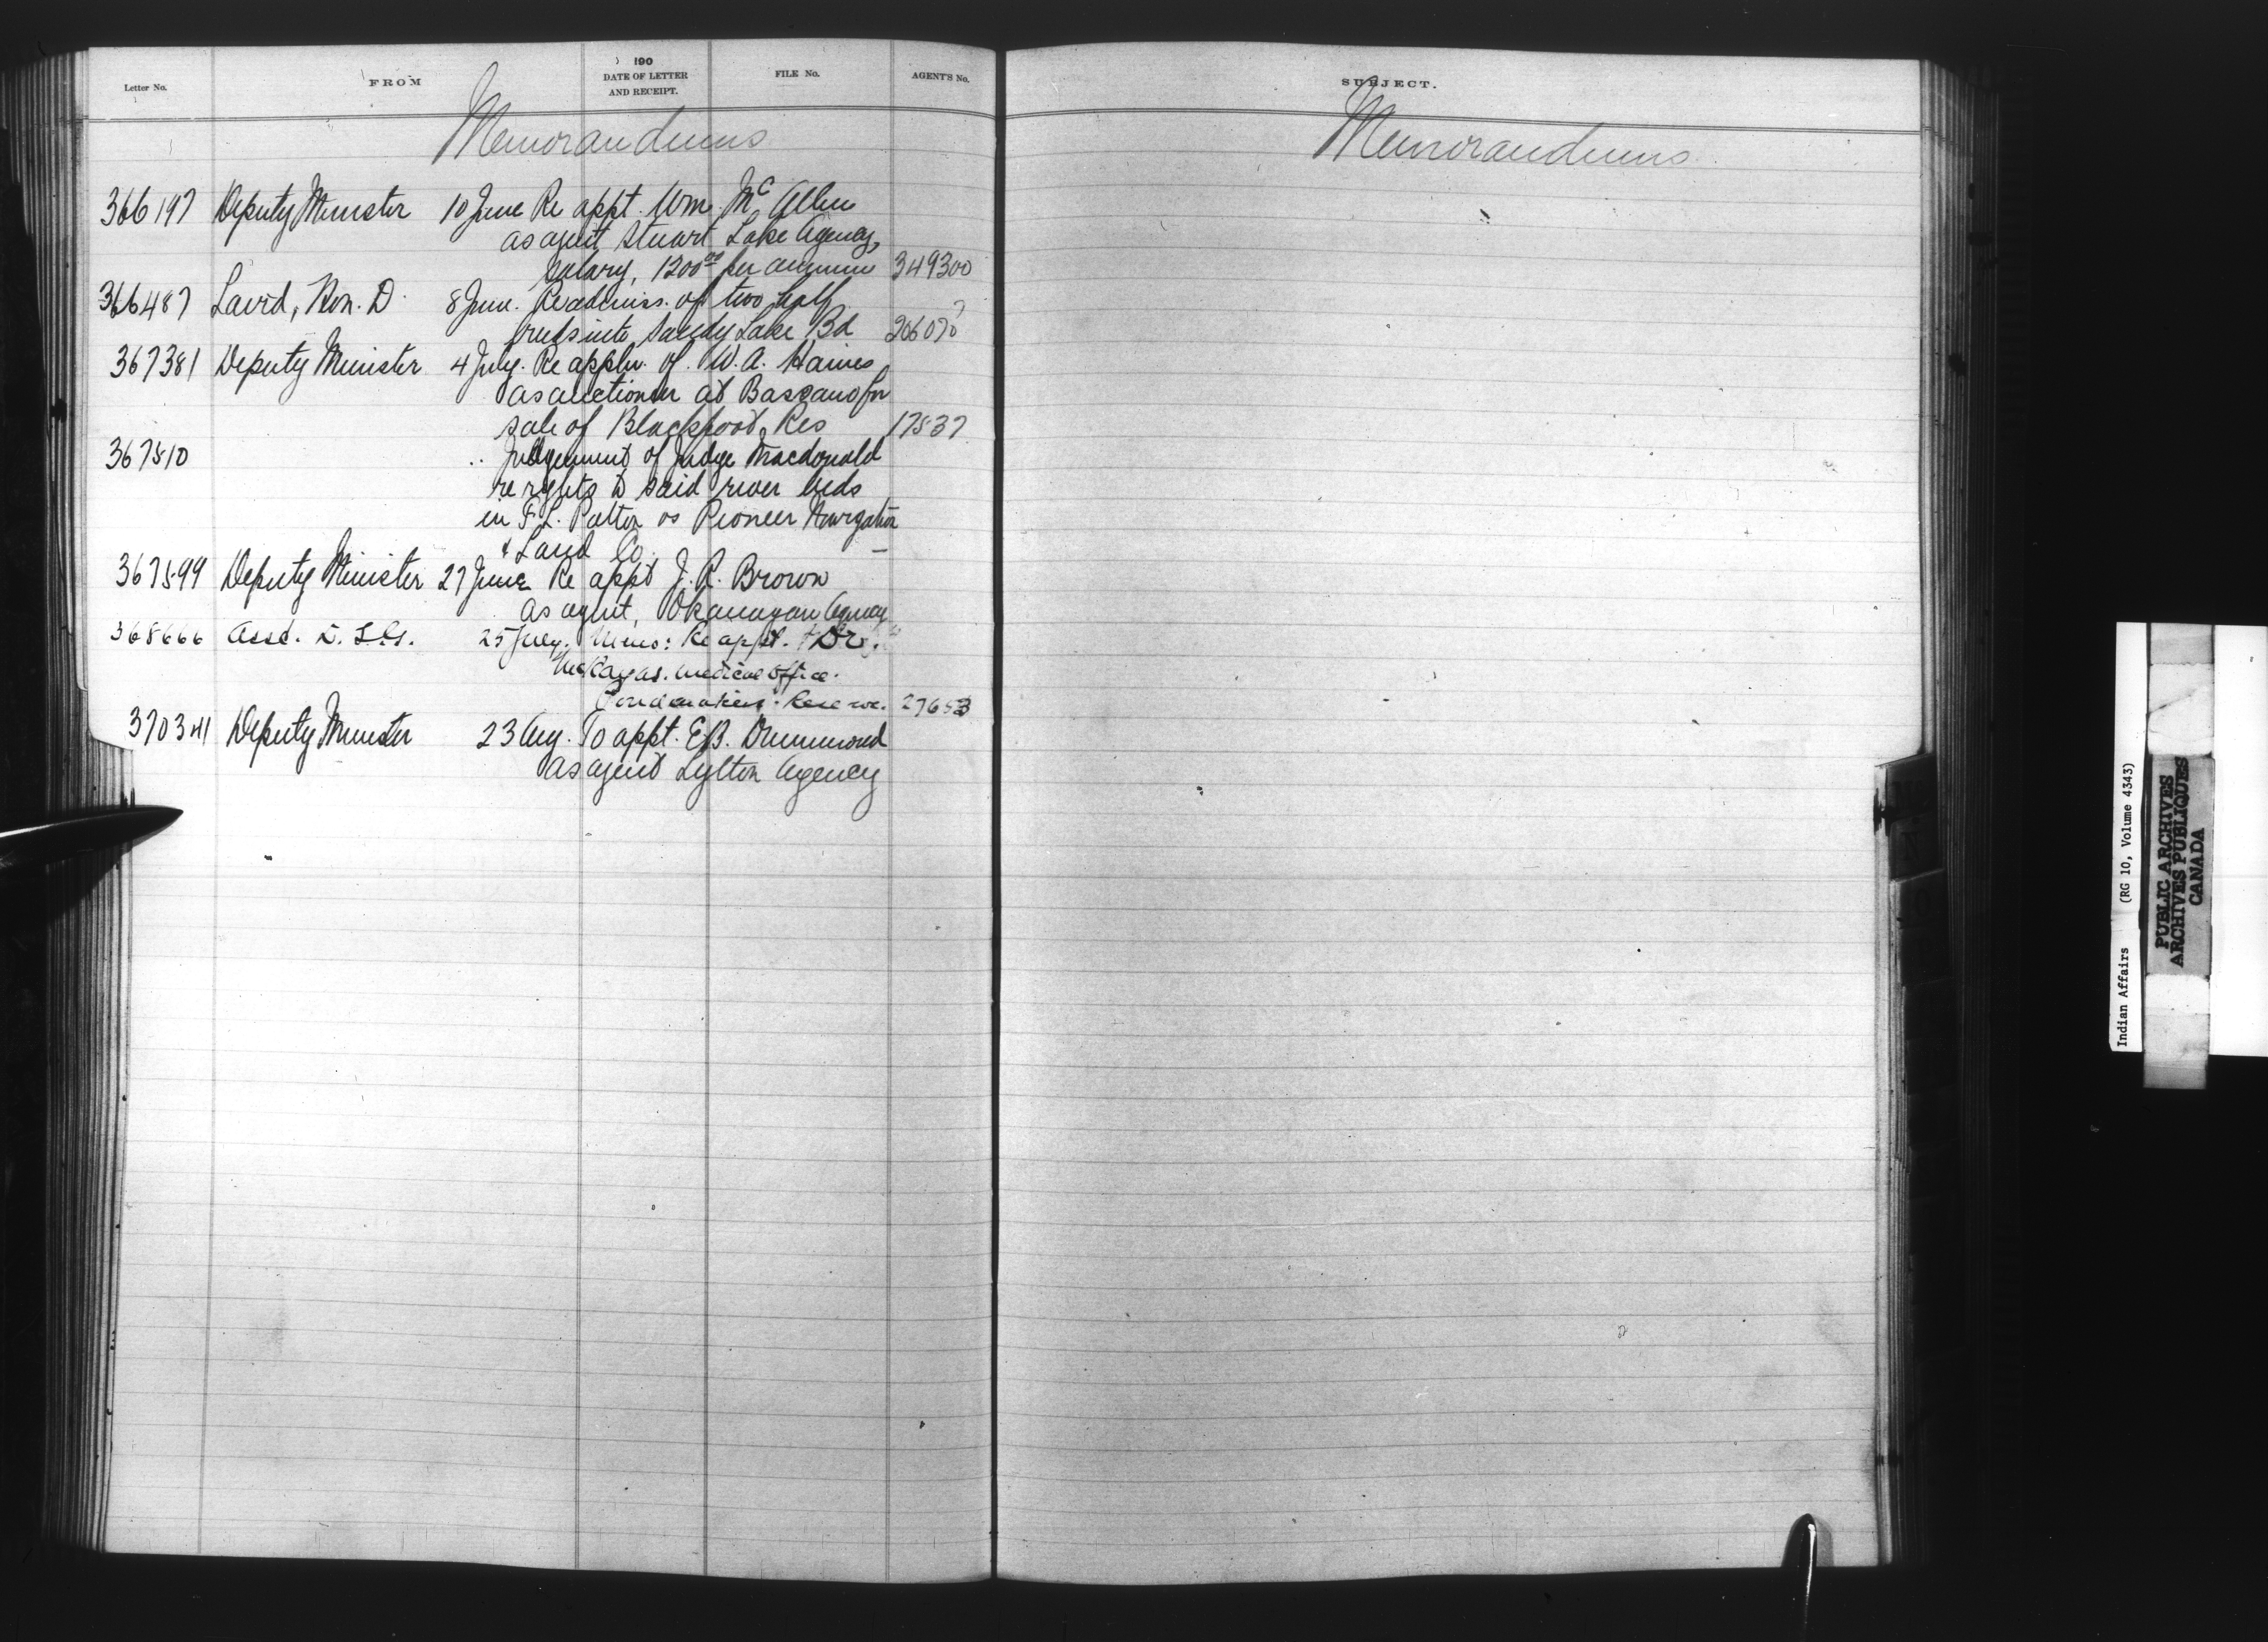 Letter No. FROM 190 DATE OF LETTER AND RECEIPT. FILE No. AGENT'S No. SUBJECT.
Memorandums Memorandums
366197 Deputy Minister 10 June Re appt. Wm. Mc Allen
as agent Stuart Lake Agency,
salary, 1200.00 per annum 349300
366487 Laird, Hon. D. 8 June. Re admiss. of two half
breeds into Sandy Lake Bd 206070?
367381 Deputy Minister 4 July. Re appln. of W. A. Haines
as auctioneer at Bassano for
sale of Blackfoot Res 17537
367510 .. Judgement of Judge Macdonald
re rights to said river beds
in F. L. Patton vs Pioneer Navigation
& Land Co. —
367599 Deputy Minister 27 June Re appt J. R. Brown
as agent, Okanagan Agency
368666 Asst. D. S. G. 25 July. Memo: Re appt. Dr.
McKay as. Medical Office.
Poundmakers. Reserve. 27653
370341 Deputy Minister 23 Aug. To appt. E.B. Drummond
as agent Lytton Agency
Indian Affairs (RG 10, Volume 4343)
PUBLIC ARCHIVES
ARCHIVES PUBLIQUES
CANADA